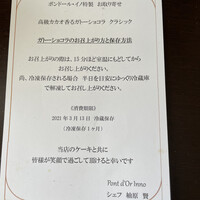 ポンドール・イノ特製 お取り寄せ
高級カカオ香るガトーショコラ クラシック
ガトーショコラのお召上がり方と保存方法
お召上がりの際は、15分ほど室温にもどしてから
お召し上がりください。
尚、冷凍保存される場合 半日を目安にゆっくり冷蔵庫
で解凍してお召し上がりください。
《消費期限》
2021年3月13日 冷蔵保存
(冷凍保存1ヶ月)
当店のケーキと共に
皆様が笑顔で過ごして頂けると幸いです
Pont d'Or Inno
シェフ 柚原 賢